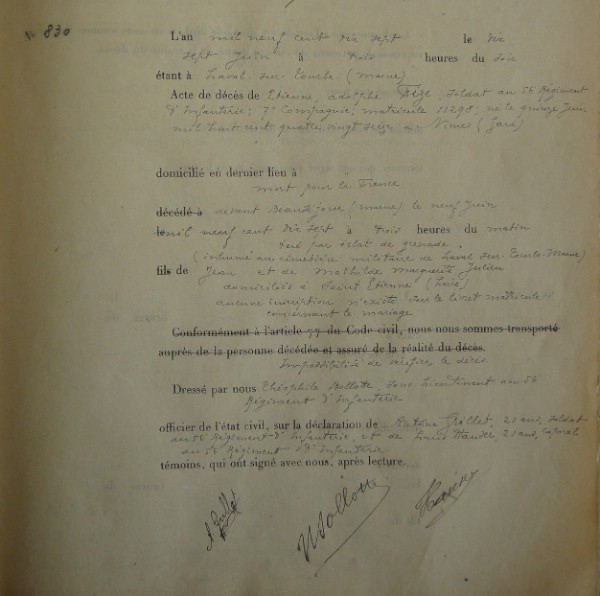 N° 830
L'an mil neuf cent dix sept le dix
sept Juin à trois heures du soir
étant à Laval sur Tourbe (Marne)
Acte de décès de Etienne Adolphe soldat au 56 Régiment
d'Infanterie; 7e Compagnie; matricule 11298; né le quinze Juin
mil huit cent quatre vingt seize à Nîmes (Gard)
domicilié en dernier lieu à
mort pour la France
décédé à devant Beauséjour (Marne) le neuf Juin
le mil neuf cent dix sept à trois heures du matin
tué par éclat de grenade.
(inhumé au cimetière militaire de Laval sur Tourbe-Marne)
fils de Jean et de Mathilde Marguerite Julien
domiciliés à Saint Etienne (Loire)
aucune inscription n'existe sur le livret matricule
concernant le mariage
Conformément à l'article 77 du Code civil, nous nous sommes transporté
auprès de la personne décédée et assuré de la réalité du décès.
Impossibilité de vérifier le décès
Dressé par nous Théophile Nollotte, Sous Lieutenant au 56
Régiment d'Infanterie
officier de l'état civil, sur la déclaration de Antoine Grillet, 21 ans, soldat
au 56 Régiment d'Infanterie, et de Louis 21 ans, Caporal
au 56 Régiment d'Infanterie
témoins, qui ont signé avec nous, après lecture.
A Grillet Nollotte